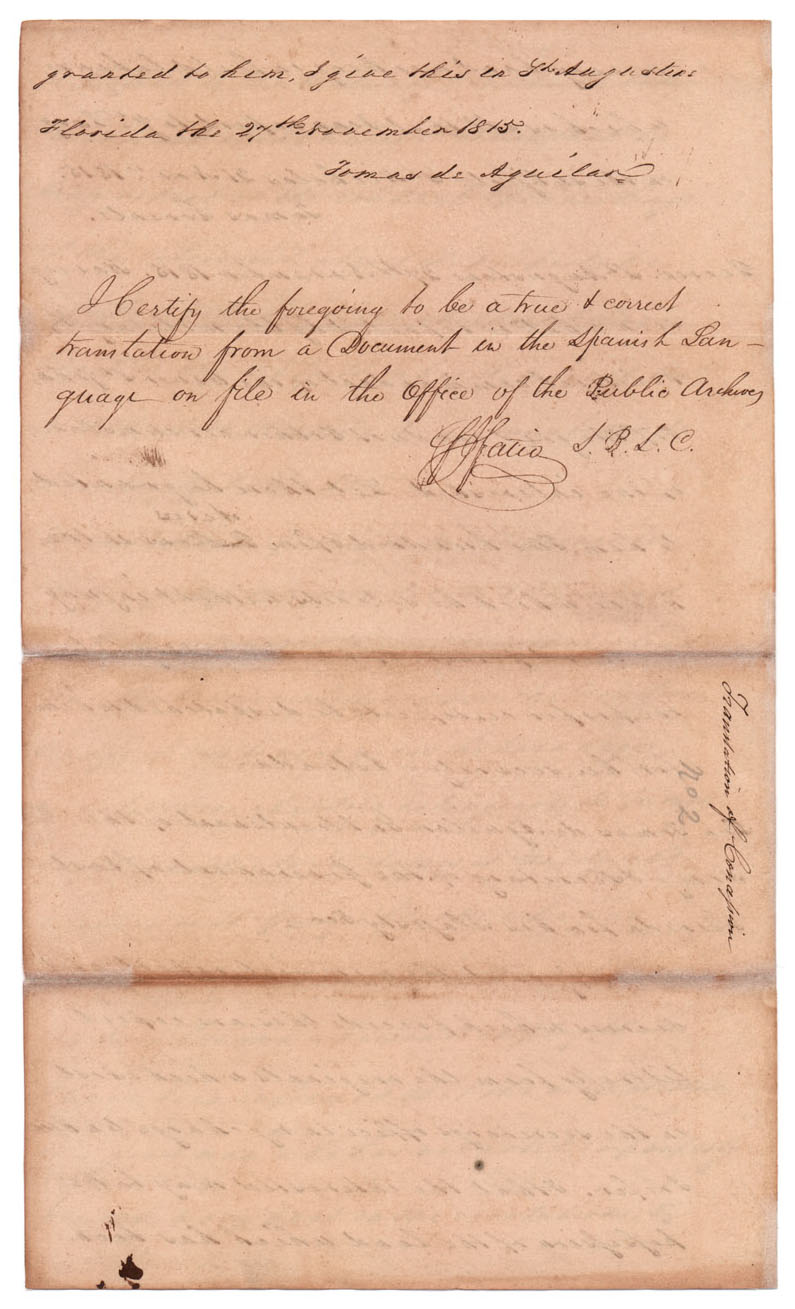 granted to him, I give this in St. Augustine
Florida the 27th November 1815.
Tomas de Aguilar
I Certify the foregoing to be a true & correct
translation from a Document in the Spanish Lan-
guage on file in the Office of the Public Archives
F J Fatio S. B. L. C.
Translation of Concession
No 2